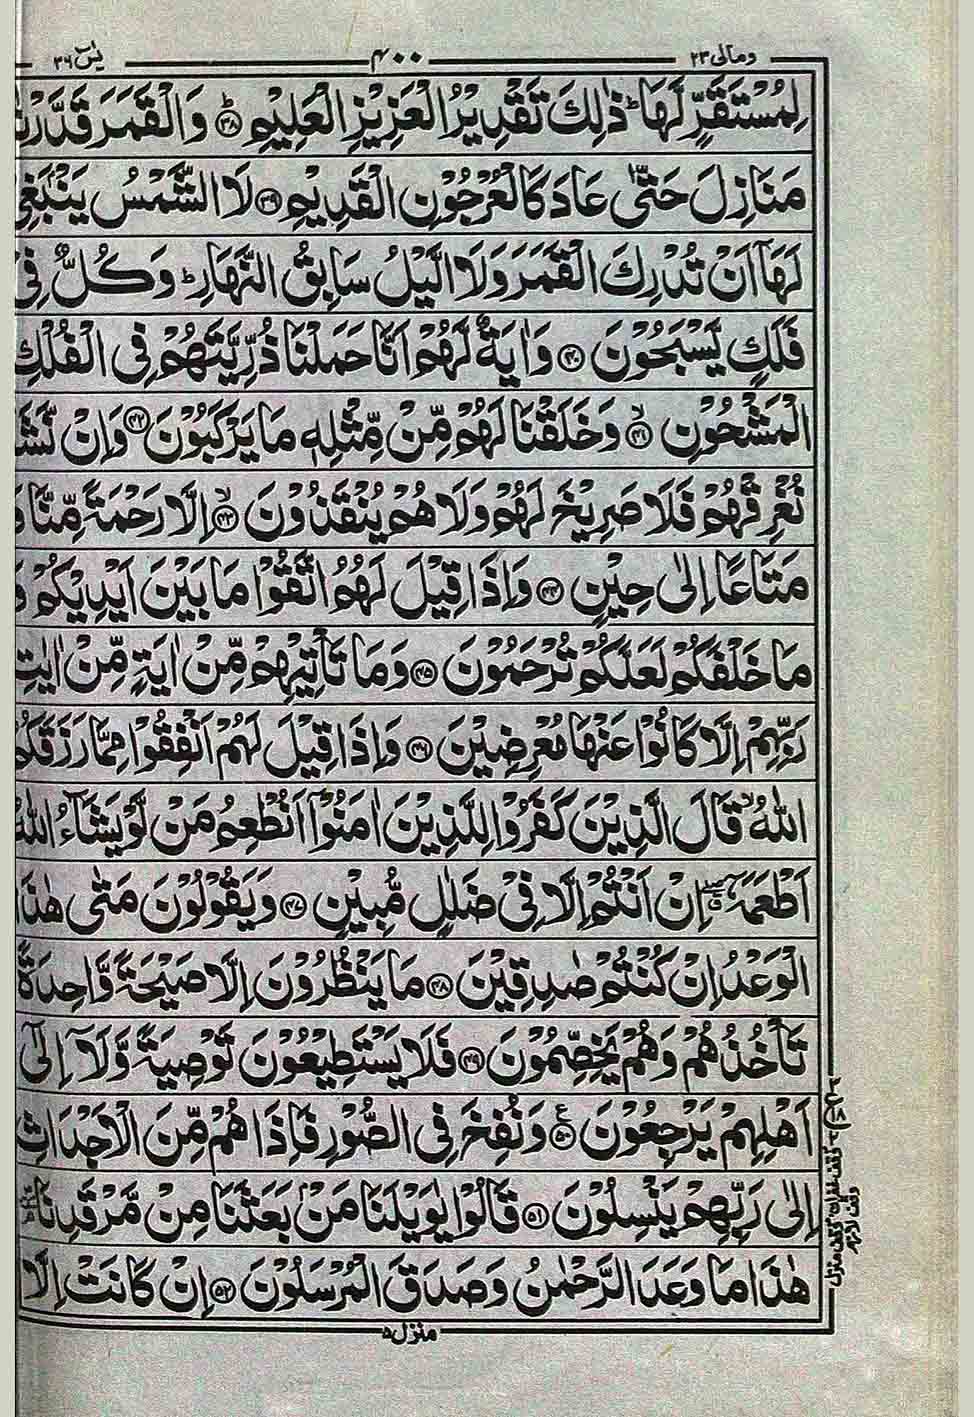 ومالی ۲۳ ۴۰۰ یٰسٓ ۳۶
لِمُسْتَقَرٍّ لَّهَا ؕ ذٰلِكَ تَقْدِيْرُ الْعَزِيْزِ الْعَلِيْمِ ؕ﴿۳۸﴾ وَالْقَمَرَ قَدَّرْنٰ
مَنَازِلَ حَتّٰى عَادَ كَالْعُرْجُوْنِ الْقَدِيْمِ ﴿۳۹﴾ لَا الشَّمْسُ يَنْۢبَغِىْ
لَهَاۤ اَنْ تُدْرِكَ الْقَمَرَ وَلَا الَّيْلُ سَابِقُ النَّهَارِ ؕ وَكُلٌّ فِىْ
فَلَكٍ يَّسْبَحُوْنَ ﴿۴۰﴾ وَاٰيَةٌ لَّهُمْ اَنَّا حَمَلْنَا ذُرِّيَّتَهُمْ فِى الْفُلْكِ
الْمَشْحُوْنِ ۙ﴿۴۱﴾ وَخَلَقْنَا لَهُمْ مِّنْ مِّثْلِهٖ مَا يَرْكَبُوْنَ ﴿۴۲﴾ وَاِنْ نَّشَاْ
نُغْرِقْهُمْ فَلَا صَرِيْخَ لَهُمْ وَلَا هُمْ يُنْقَذُوْنَ ۙ﴿۴۳﴾ اِلَّا رَحْمَةً مِّنَّا وَ
مَتَاعًا اِلٰى حِيْنٍ ﴿۴۴﴾ وَاِذَا قِيْلَ لَهُمُ اتَّقُوْا مَا بَيْنَ اَيْدِيْكُمْ وَ
مَا خَلْفَكُمْ لَعَلَّكُمْ تُرْحَمُوْنَ ﴿۴۵﴾ وَمَا تَاْتِيْهِمْ مِّنْ اٰيَةٍ مِّنْ اٰيٰتِ
رَبِّهِمْ اِلَّا كَانُوْا عَنْهَا مُعْرِضِيْنَ ﴿۴۶﴾ وَاِذَا قِيْلَ لَهُمْ اَنْفِقُوْا مِمَّا رَزَقَكُمُ
اللّٰهُ ۙ قَالَ الَّذِيْنَ كَفَرُوْا لِلَّذِيْنَ اٰمَنُوْۤا اَنُطْعِمُ مَنْ لَّوْ يَشَآءُ اللّٰهُ
اَطْعَمَهٗۤ اِنْ اَنْتُمْ اِلَّا فِىْ ضَلٰلٍ مُّبِيْنٍ ﴿۴۷﴾ وَيَقُوْلُوْنَ مَتٰى هٰذَا
الْوَعْدُ اِنْ كُنْتُمْ صٰدِقِيْنَ ﴿۴۸﴾ مَا يَنْظُرُوْنَ اِلَّا صَيْحَةً وَّاحِدَةً
تَاْخُذُهُمْ وَهُمْ يَخِصِّمُوْنَ ﴿۴۹﴾ فَلَا يَسْتَطِيْعُوْنَ تَوْصِيَةً وَّلَاۤ اِلٰٓى
اَهْلِهِمْ يَرْجِعُوْنَ ﴿۵۰﴾ ع وَنُفِخَ فِى الصُّوْرِ فَاِذَا هُمْ مِّنَ الْاَجْدَاثِ
اِلٰى رَبِّهِمْ يَنْسِلُوْنَ ﴿۵۱﴾ قَالُوْا يٰوَيْلَنَا مَنْۢ بَعَثَنَا مِنْ مَّرْقَدِنَا
هٰذَا مَا وَعَدَ الرَّحْمٰنُ وَصَدَقَ الْمُرْسَلُوْنَ ﴿۵۲﴾ اِنْ كَانَتْ اِلَّا
منزل ۵
وقف غفران
وقف منزل
وقف لازم